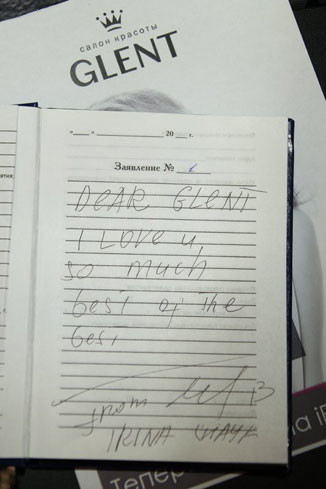 салон красоты
GLENT
"___" ____________ 20 ___ г.
Заявление №
DEAR GLENT
I LOVE U,
so much
best of the
best
from
IRINA
Тепер